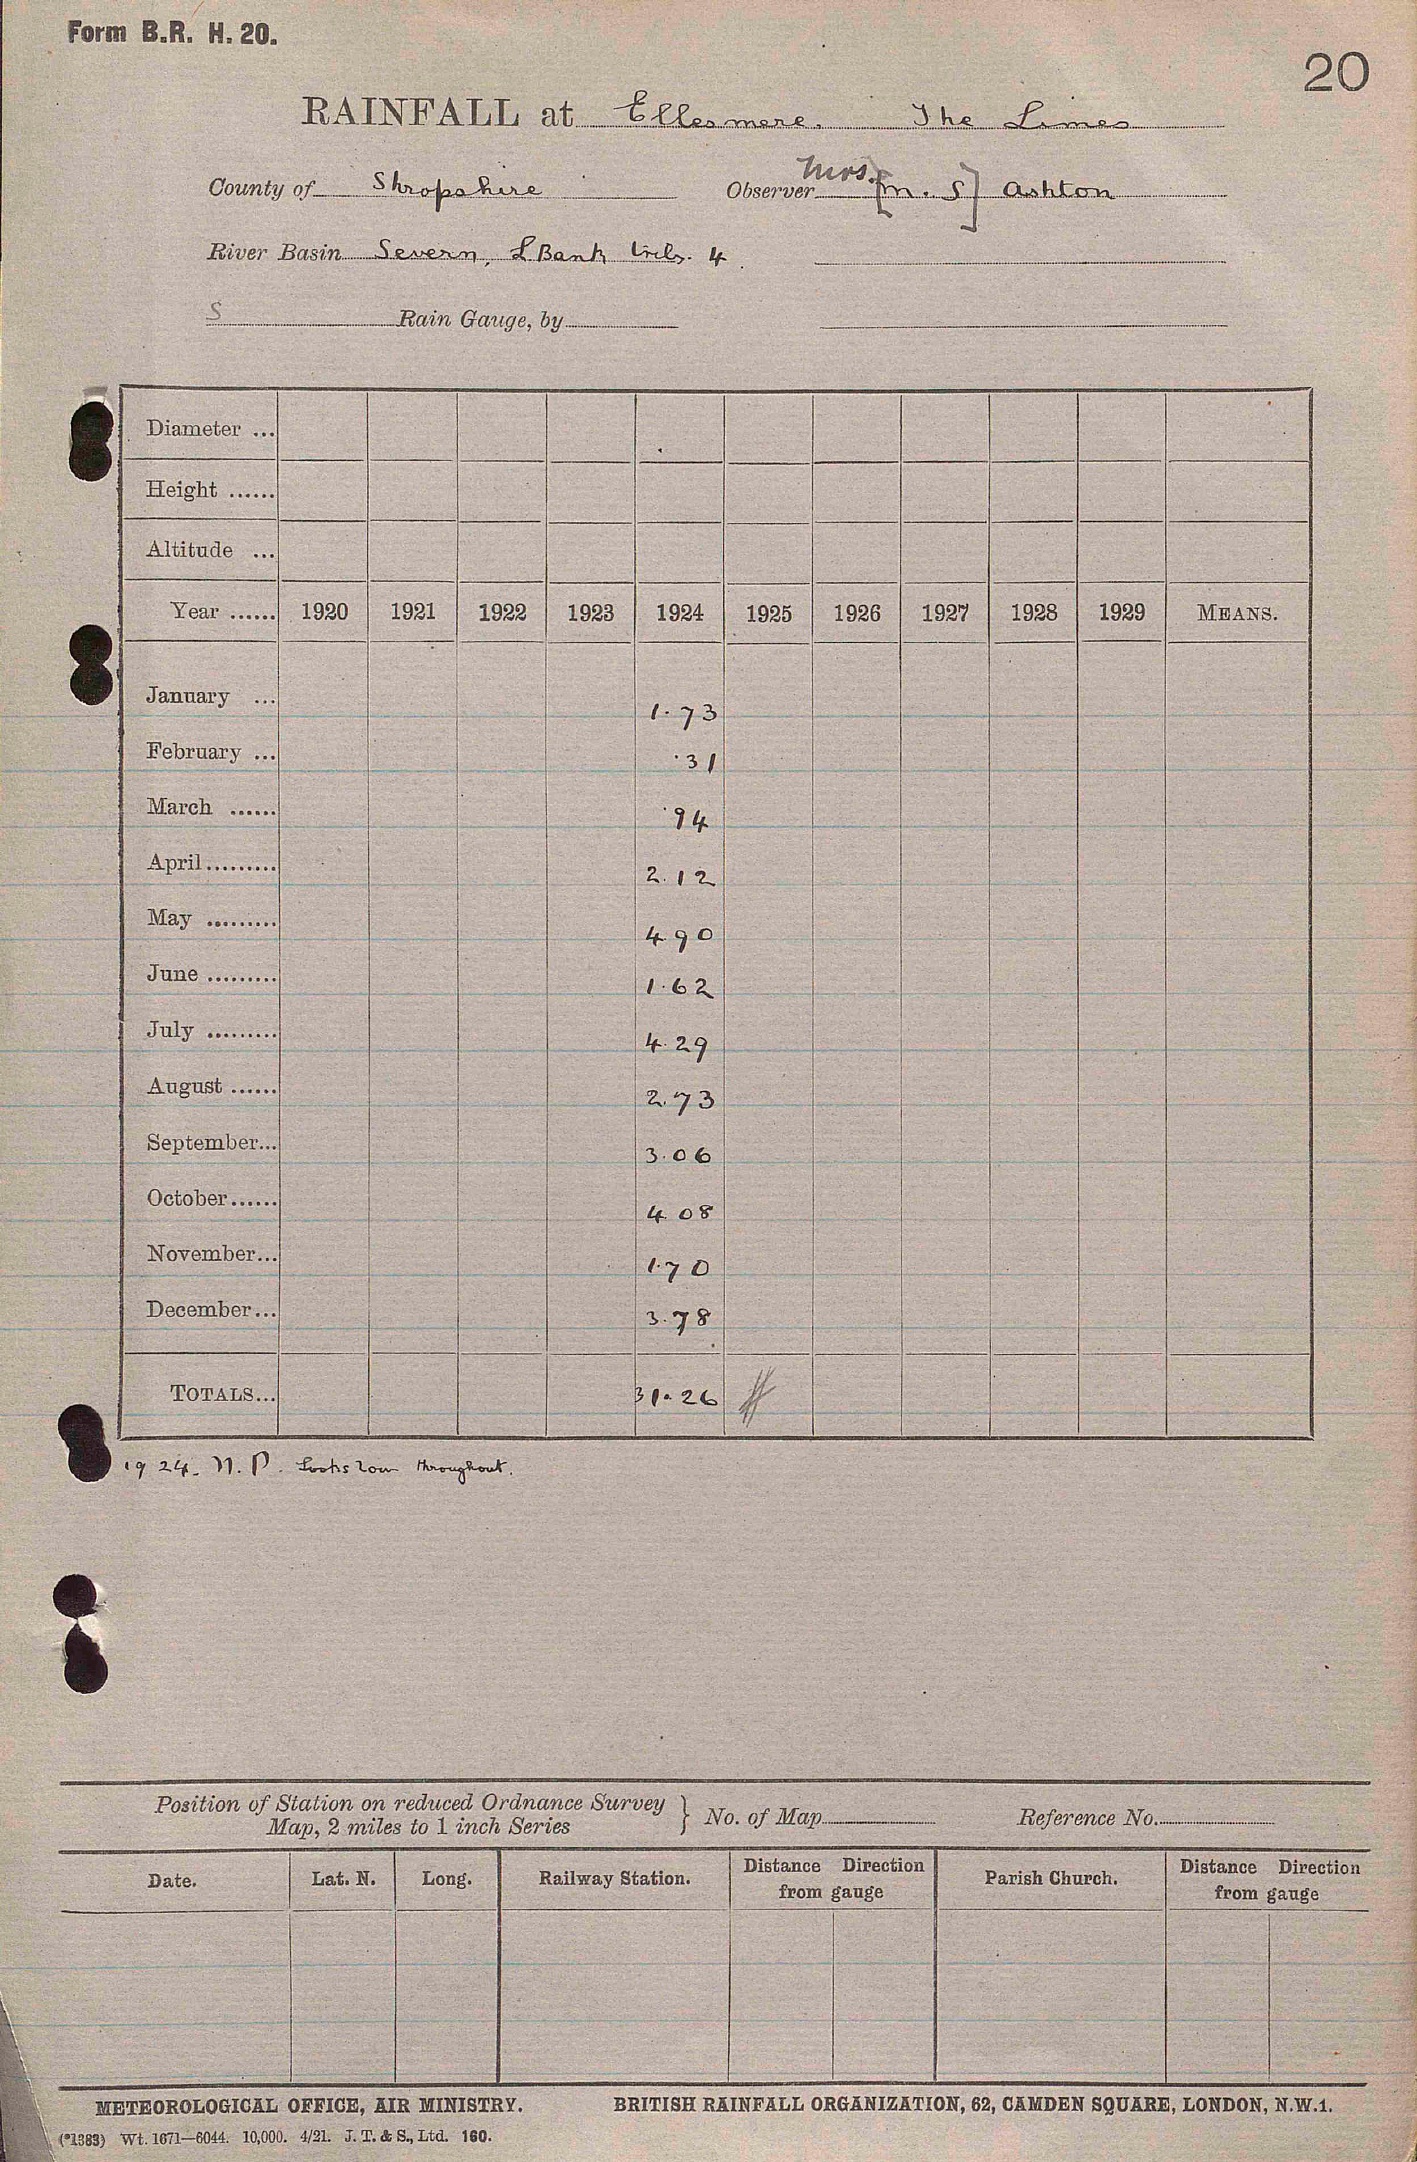 Form B.R. H. 20.
20
RAINFALL at Ellesmere. The Limes
County of Shropshire Observer Mrs. [M. S] Ashton
River Basin Severn, L Bank tribs. 4
S Rain Gauge, by
Diameter ...
Height ......
Altitude ...
Year ...... 1920 1921 1922 1923 1924 1925 1926 1927 1928 1929 MEANS.
January ... 1.73
February ... .31
March ...... .94
April......... 2.12
May ......... 4.90
June ......... 1.62
July ......... 4.29
August ...... 2.73
September... 3.06
October...... 4.08
November... 1.70
December... 3.78
TOTALS... 31.26
1924. N.P. Looks low throughout.
Position of Station on reduced Ordnance Survey
Map, 2 miles to 1 inch Series } No. of Map Reference No.
Date. Lat. N. Long. Railway Station. Distance Direction from gauge Parish Church. Distance Direction from gauge
METEOROLOGICAL OFFICE, AIR MINISTRY. BRITISH RAINFALL ORGANIZATION, 62, CAMDEN SQUARE, LONDON, N.W.1.
(*1383) Wt. 1671—6044. 10,000. 4/21. J. T. & S., Ltd. 160.